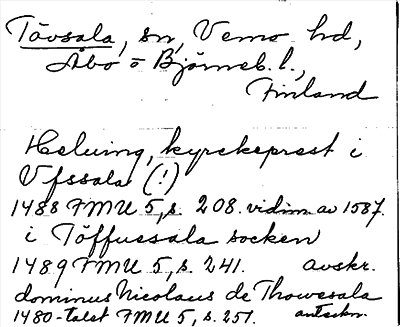 Tövsala, sn, Vemo hd,
Åbo o Björneb. l.,
Finland
Helsing, kyrckeprest i
Vfssala (!)
1488 FMU 5, s. 208. vidim. av 1587.
i Töffuesala socken
1489 FMU 5, s. 241. avskr.
dominus Nicolaus de Thowesala
1480-talet FMU 5, s. 251. anteckn.